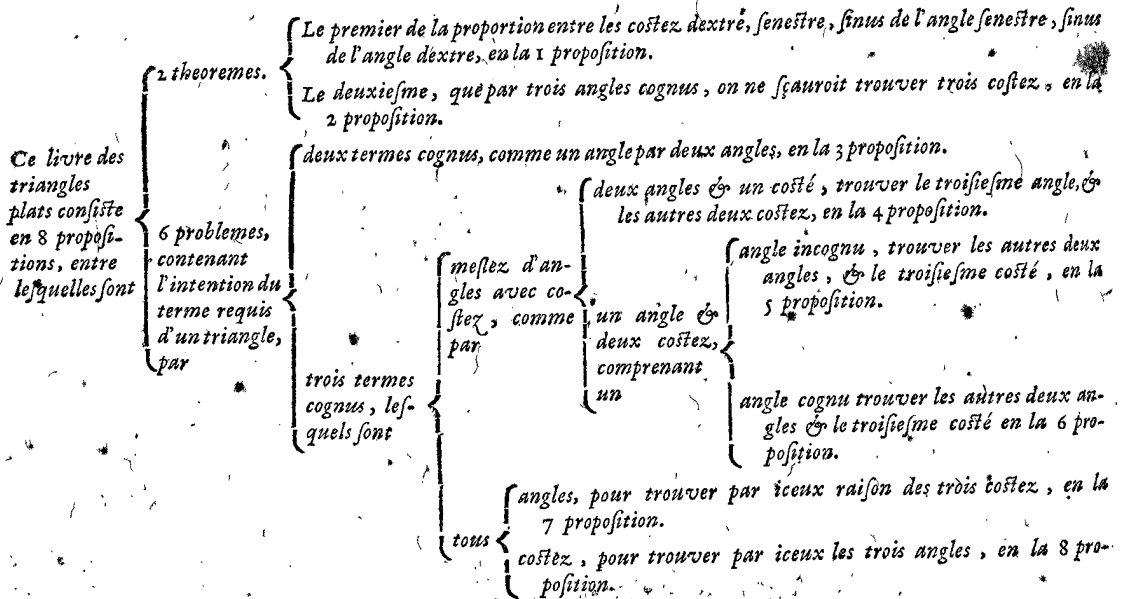 Ce livre des
triangles
plats consiste
en 8 proposi-
tions, entre
lesquelles sont
2 theoremes.
Le premier de la proportion entre les costez dextre, senestre, sinus de l'angle senestre, sinus
de l'angle dextre, en la 1 proposition.
Le deuxiesme, que par trois angles cognus, on ne sçauroit trouver trois costez, en la
2 proposition.
6 problemes,
contenant
l'intention du
terme requis
d'un triangle,
par
deux termes cognus, comme un angle par deux angles, en la 3 proposition.
trois termes
cognus, les-
quels sont
meslez d'an-
gles avec co-
stez, comme
par
deux angles & un costé, trouver le troisiesme angle, &
les autres deux costez, en la 4 proposition.
un angle &
deux costez,
comprenant
un
angle incognu, trouver les autres deux
angles, & le troisiesme costé, en la
5 proposition.
angle cognu trouver les autres deux an-
gles & le troisiesme costé en la 6 pro-
position.
tous
angles, pour trouver par iceux raison des trois costez, en la
7 proposition.
costez, pour trouver par iceux les trois angles, en la 8 pro-
position.